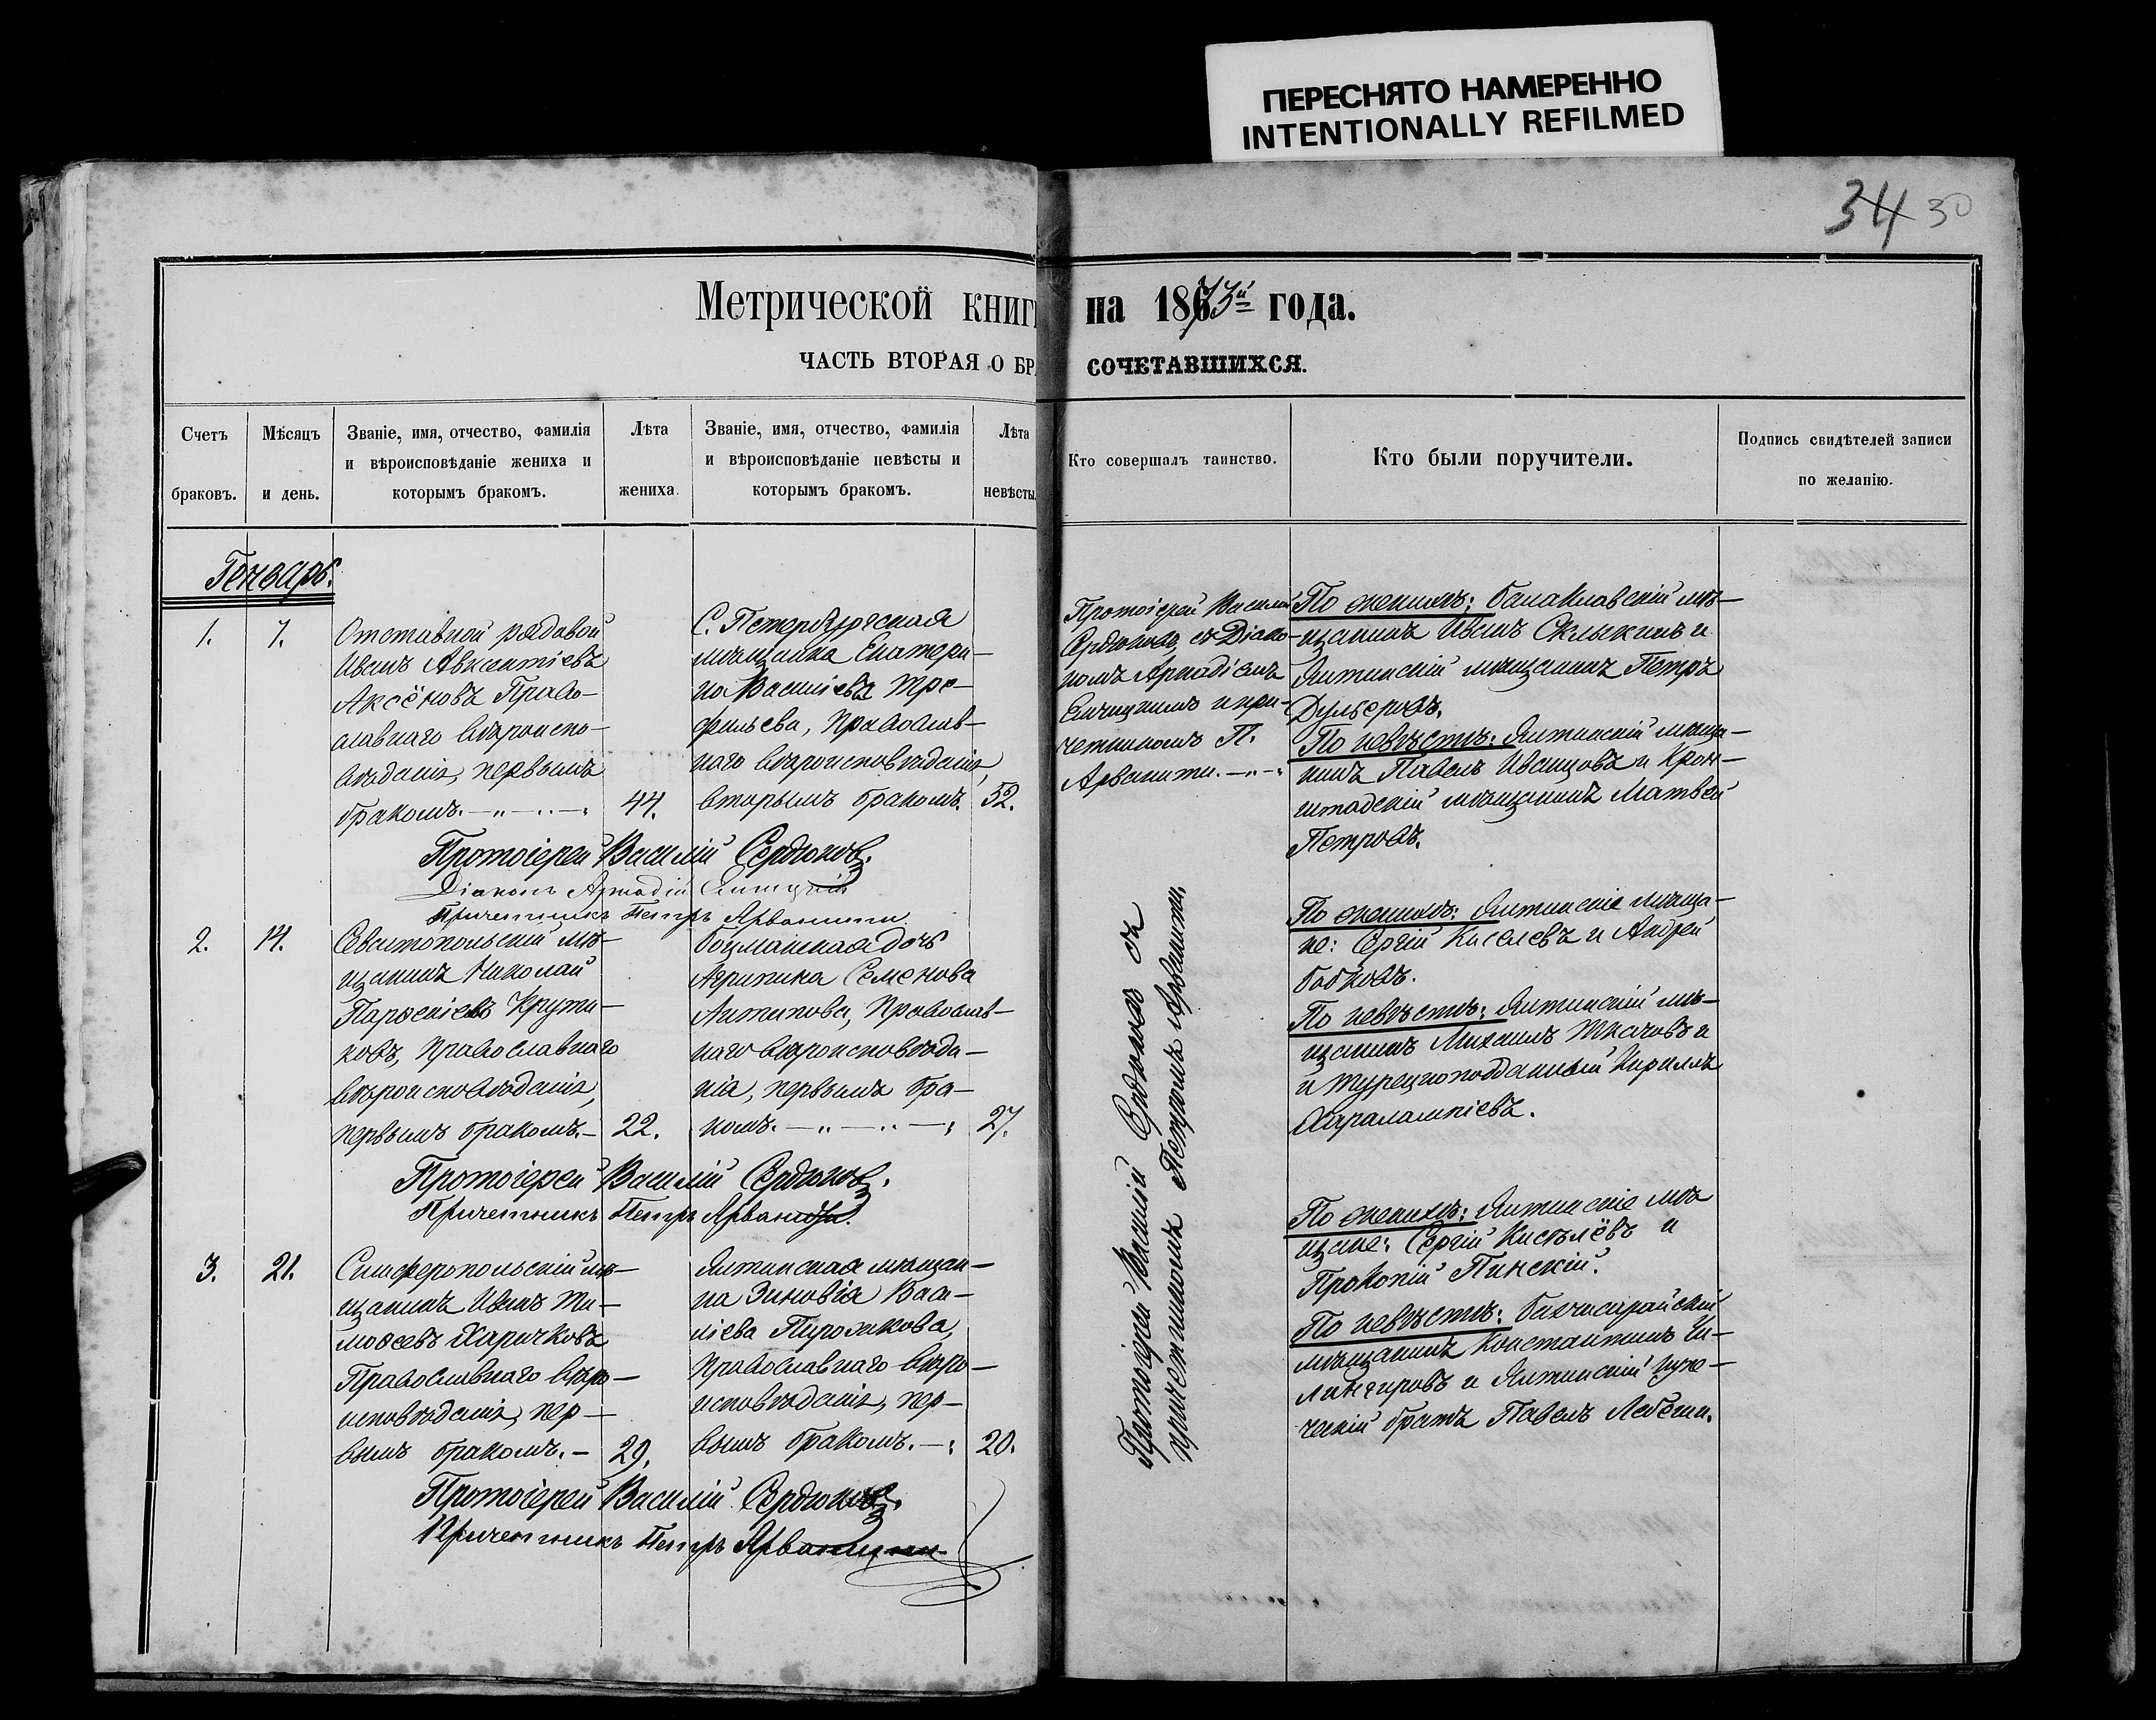 ПЕРЕСНЯТО НАМЕРЕННО
INTENTIONALLY REFILMED
34 30
Метрической книги на 1873й года.
ЧАСТЬ ВТОРАЯ О БРА СОЧЕТАВШИХСЯ.
Счетъ браковъ.
Мѣсяцъ и день.
Званіе, имя, отчество, фамилія
и вѣроисповѣданіе жениха и
которымъ бракомъ.
Лѣта
жениха.
Званіе, имя, отчество, фамилія
и вѣроисповѣданіе невѣсты и
которымъ бракомъ.
Лѣта
невѣсты.
Кто совершалъ таинство.
Кто были поручители.
Подпись свидѣтелей записи
по желанію.
Генварь.
1.
7.
Отставной рядовой
Иванъ Авксентіевъ
Аксёновъ Право-
славнаго вѣроиспо-
вѣданія, первымъ
бракомъ.
44.
С. Петербургская
мѣщанка Екатери-
на Васильева Тре-
фильева, Православ-
наго вѣроисповѣданія,
вторымъ бракомъ.
52.
Протоіерей Василій
Сердюковъ съ Діако-
номъ Аркадіемъ
и при-
четникомъ П.
Арванити.
По женихѣ: балаклавскій мѣ-
щанинъ Иванъ и
Ялтинскій мѣщанинъ Петръ
По невѣстѣ: Ялтинскій мѣща-
нинъ Павелъ Иванцовъ и Крон-
штадскій мѣщанинъ Матвей
Петровъ.
Протоіерей Василій Сердюковъ.
Діаконъ Аркадій
Причетникъ Петръ Арванити
2.
14.
Севастопольскій мѣ-
щанинъ Николай
Парѳеніевъ Крути-
ковъ, православнаго
вѣроисповѣданія,
первымъ бракомъ.
22.
Боцманская дочь
Агрипина Семенова
Антипова, Православ-
наго вѣроисповѣда-
нія, первымъ бра-
комъ.
27.
По женихѣ: Ялтинскіе мѣща-
не: Сергій Киселевъ и Андрей
бобковъ.
По невѣстѣ: Ялтинскій мѣ-
щанинъ Михаилъ Ткачовъ и
и турецкоподданный Кириллъ
Харалампіевъ.
Протоіерей Василій Сердюковъ.
Причетникъ Петръ Арванити.
Протоіерей Василій Сердюковъ съ
причетникомъ Петромъ Арванити.
3.
21.
Симферопольскій мѣ-
щанинъ Иванъ Ти-
моѳеевъ Харичковъ
Православнаго вѣро-
исповѣданія, пер-
вымъ бракомъ.
29.
Ялтинская мѣщан-
ка Зиновія Васи-
ліева Пирожкова,
православнаго вѣро-
исповѣданія, пер-
вымъ бракомъ.
20.
По женихѣ: Ялтинскіе мѣ
щане: Сергій Киселёвъ и
Прокопій Пинскій.
По невѣстѣ: бахчисарайскій
мѣщанинъ Константинъ Чи-
лингировъ и Ялтинскій купе-
ческій братъ Павелъ
Протоіерей Василій Сердюковъ.
Причетникъ Петръ Арванити